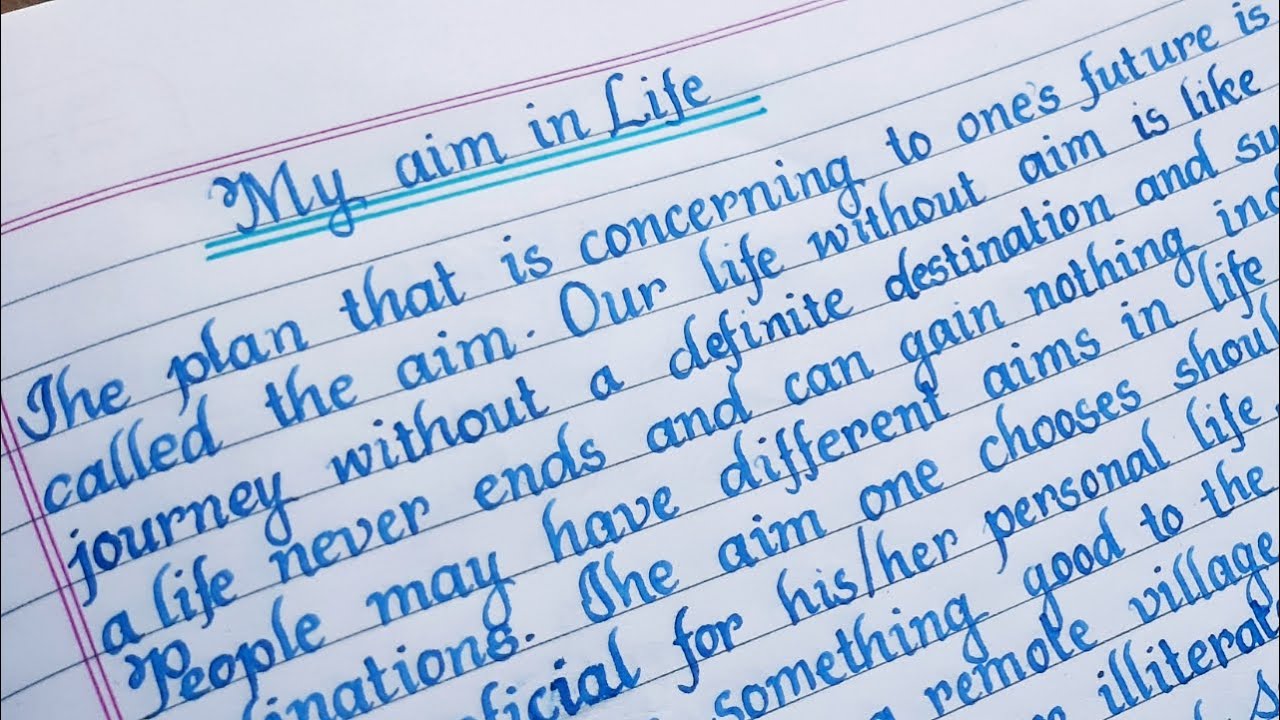 My aim in Life
The plan that is concerning to one's future is
called the aim. Our life without aim is like
journey without a definite destination and su
a life never ends and can gain nothing ind
People may have different aims in life
inations. The aim one chooses shoul
ficial for his/her personal life
something good to the
remote village
illiterat